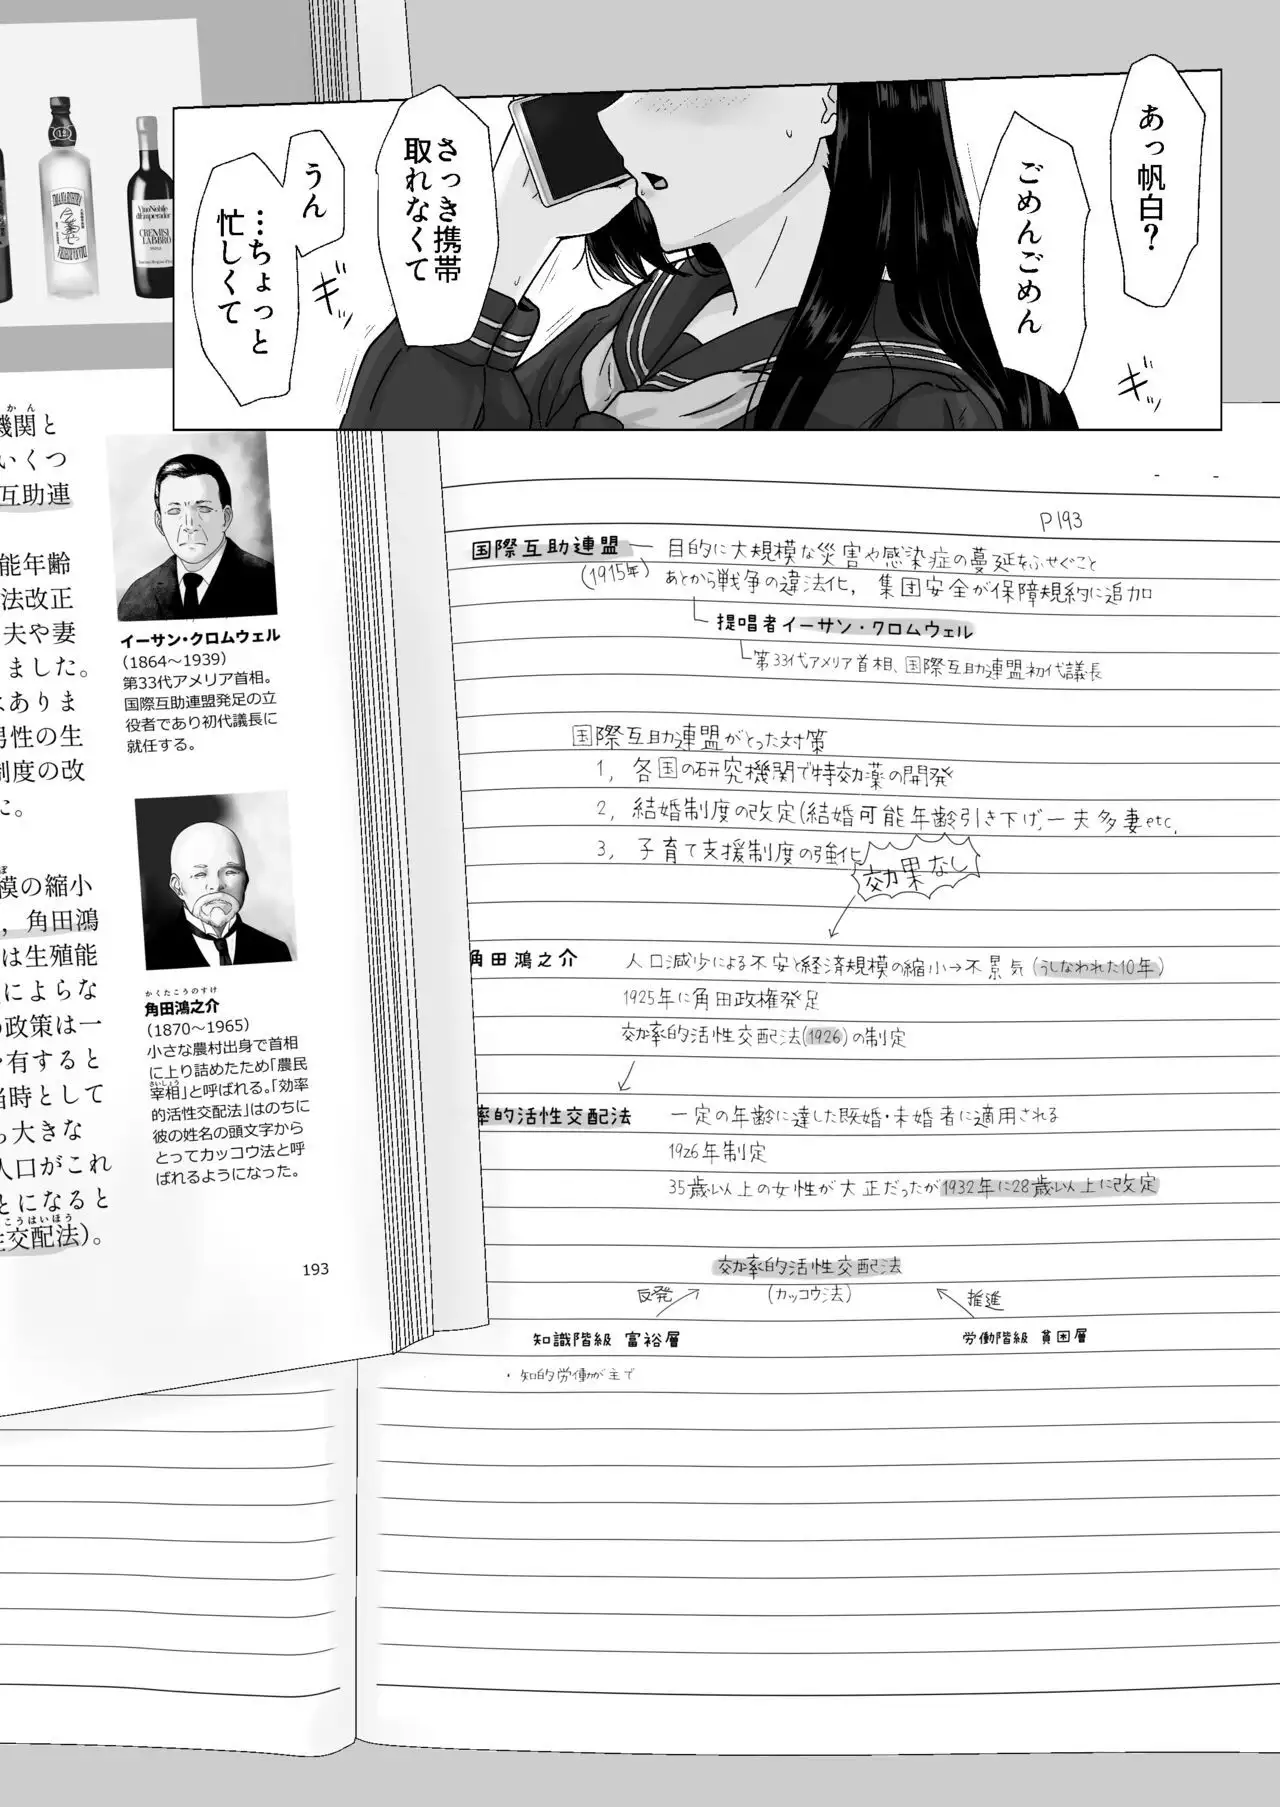 あっ帆白？
ごめんごめん
さっき携帯
取れなくて
うん
…ちょっと
忙しくて
ギッ
ギッ
12
Vino Nobile
d'Emperador
CREMISI
LABBRO
かん
機関と
いくつ
互助連
能年齢
法改正
夫や妻
ました。
はありま
男性の生
制度の改
た。
模の縮小
，角田鴻
は生殖能
によらな
の政策は一
有すると
当時として
大きな
人口がこれ
とになると
こうはいほう
性交配法）。
イーサン・クロムウェル
（1864～1939）
第33代アメリア首相。
国際互助連盟発足の立
役者であり初代議長に
就任する。
かくたこうのすけ
角田鴻之介
（1870～1965）
小さな農村出身で首相
に上り詰めたため「農民
さいしょう
宰相」と呼ばれる。「効率
的活性交配法」はのちに
彼の姓名の頭文字から
とってカッコウ法と呼
ばれるようになった。
193
P193
国際互助連盟 ― 目的に大規模な災害や感染症の蔓延をふせぐこと
(1915年) あとから戦争の違法化，集団安全が保障規約に追加
提唱者イーサン・クロムウェル
第33代アメリア首相、国際互助連盟初代議長
国際互助連盟がとった対策
1, 各国の研究機関で特効薬の開発
2, 結婚制度の改定(結婚可能年齢引き下げ,一夫多妻etc,
3, 子育て支援制度の強化
効果なし
角田鴻之介 人口減少による不安と経済規模の縮小→不景気(うしなわれた10年)
1925年に角田政権発足
効率的活性交配法(1926)の制定
率的活性交配法 一定の年齢に達した既婚・未婚者に適用される
1926年制定
35歳以上の女性が大正だったが1932年に28歳以上に改定
効率的活性交配法
(カッコウ法)
反発
推進
知識階級 富裕層
労働階級 貧困層
・知的労働が主で